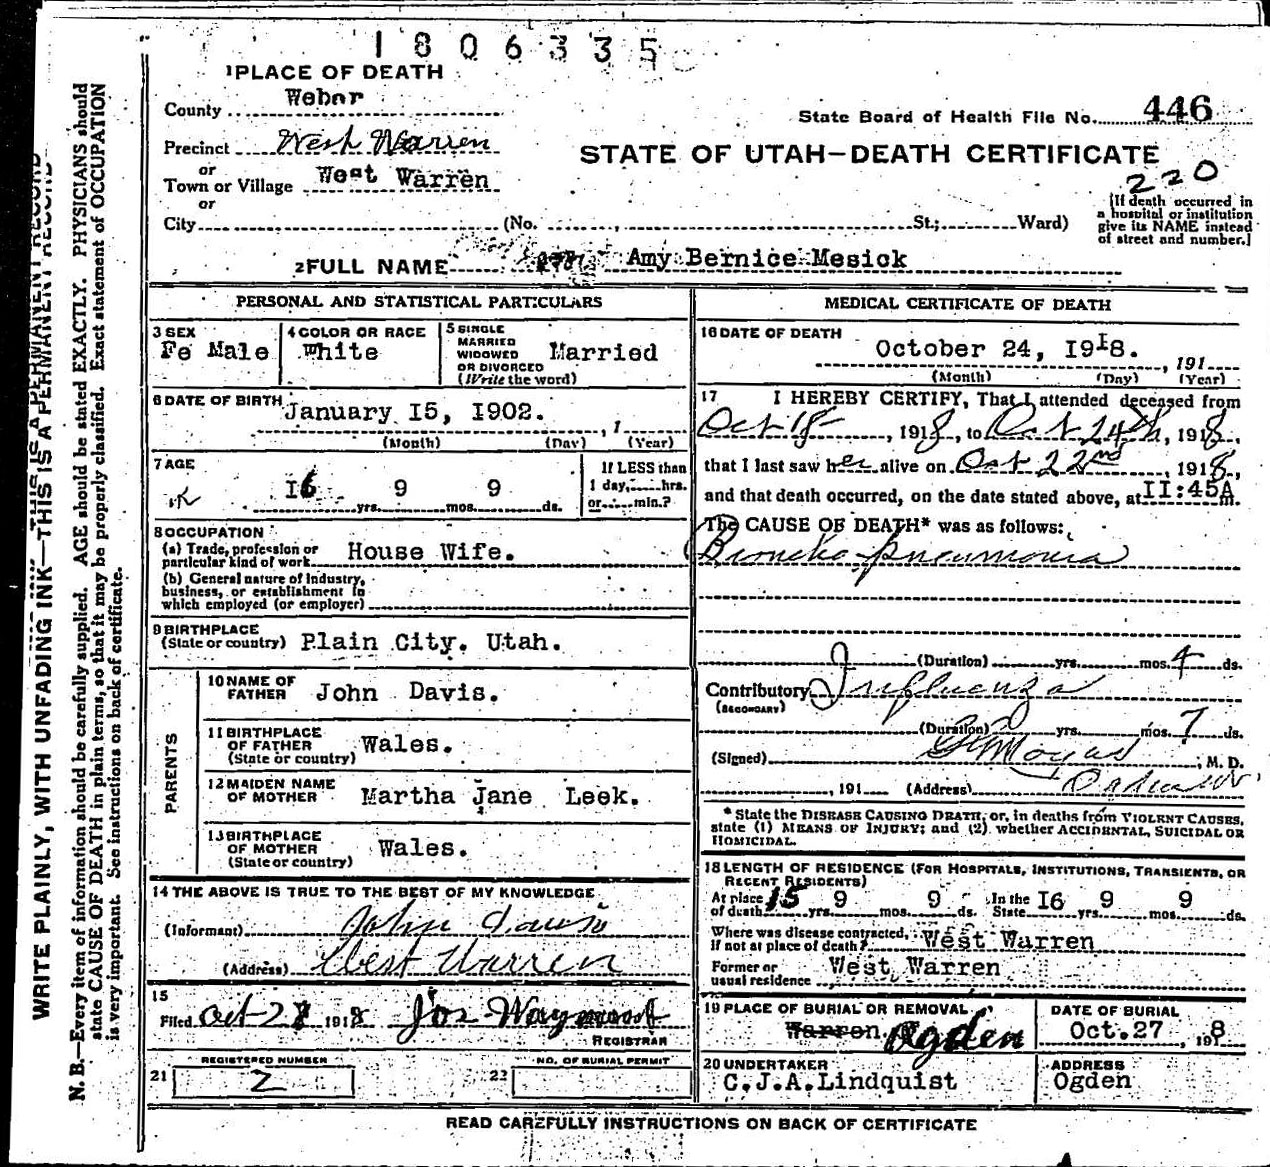 1806335
1 PLACE OF DEATH
County Weber
State Board of Health File No. 446
Precinct West Warren
STATE OF UTAH—DEATH CERTIFICATE
or
Town or Village West Warren
220
or
City (No. , St.; Ward)
[If death occurred in
a hospital or institution
give its NAME instead
of street and number.]
2 FULL NAME Amy Bernice Mesick
PERSONAL AND STATISTICAL PARTICULARS
3 SEX
Fe Male
4 COLOR OR RACE
White
5 SINGLE
MARRIED
WIDOWED
OR DIVORCED
(Write the word)
Married
6 DATE OF BIRTH
January I5, I902.
, 1
(Month) (Day) (Year)
7 AGE
I6 yrs. 9 mos. 9 ds.
If LESS than
1 day, hrs.
or min.?
8 OCCUPATION
(a) Trade, profession or
particular kind of work House Wife.
(b) General nature of industry,
business, or establishment in
which employed (or employer)
9 BIRTHPLACE
(State or country) Plain City. Utah.
PARENTS
10 NAME OF
FATHER John Davis.
11 BIRTHPLACE
OF FATHER
(State or country) Wales.
12 MAIDEN NAME
OF MOTHER Martha Jane Leek.
13 BIRTHPLACE
OF MOTHER
(State or country) Wales.
14 THE ABOVE IS TRUE TO THE BEST OF MY KNOWLEDGE
(Informant) John Davis
(Address) West Warren
15
Filed Oct 28 1918 Jos Waymont
REGISTRAR
REGISTERED NUMBER
21 2
NO. OF BURIAL PERMIT
22
MEDICAL CERTIFICATE OF DEATH
16 DATE OF DEATH
October 24, I9I8.
, 191
(Month) (Day) (Year)
17 I HEREBY CERTIFY, That I attended deceased from
Oct 18 , 1918, to Oct 24th, 1918,
that I last saw her alive on Oct 22nd , 1918,
and that death occurred, on the date stated above, at II:45A m.
The CAUSE OF DEATH* was as follows:
Broncho-pneumonia
(Duration) yrs. mos. 4 ds.
Contributory Influenza
(SECONDARY)
(Duration) yrs. mos. 7 ds.
(Signed) , M. D.
, 191 (Address)
* State the DISEASE CAUSING DEATH, or, in deaths from VIOLENT CAUSES,
state (1) MEANS OF INJURY; and (2) whether ACCIDENTAL, SUICIDAL OR
HOMICIDAL.
18 LENGTH OF RESIDENCE (FOR HOSPITALS, INSTITUTIONS, TRANSIENTS, OR
RECENT RESIDENTS)
At place
of death 15 yrs. 9 mos. 9 ds. In the State I6 yrs. 9 mos. 9 ds.
Where was disease contracted,
if not at place of death? West Warren
Former or
usual residence West Warren
19 PLACE OF BURIAL OR REMOVAL
Warren Ogden
DATE OF BURIAL
Oct.27 , 1918
20 UNDERTAKER
C.J.A.Lindquist
ADDRESS
Ogden
READ CAREFULLY INSTRUCTIONS ON BACK OF CERTIFICATE
WRITE PLAINLY, WITH UNFADING INK—THIS IS A PERMANENT RECORD
N. B.—Every item of information should be carefully supplied. AGE should be stated EXACTLY. PHYSICIANS should
state CAUSE OF DEATH in plain terms, so that it may be properly classified. Exact statement of OCCUPATION
is very important. See instructions on back of certificate.